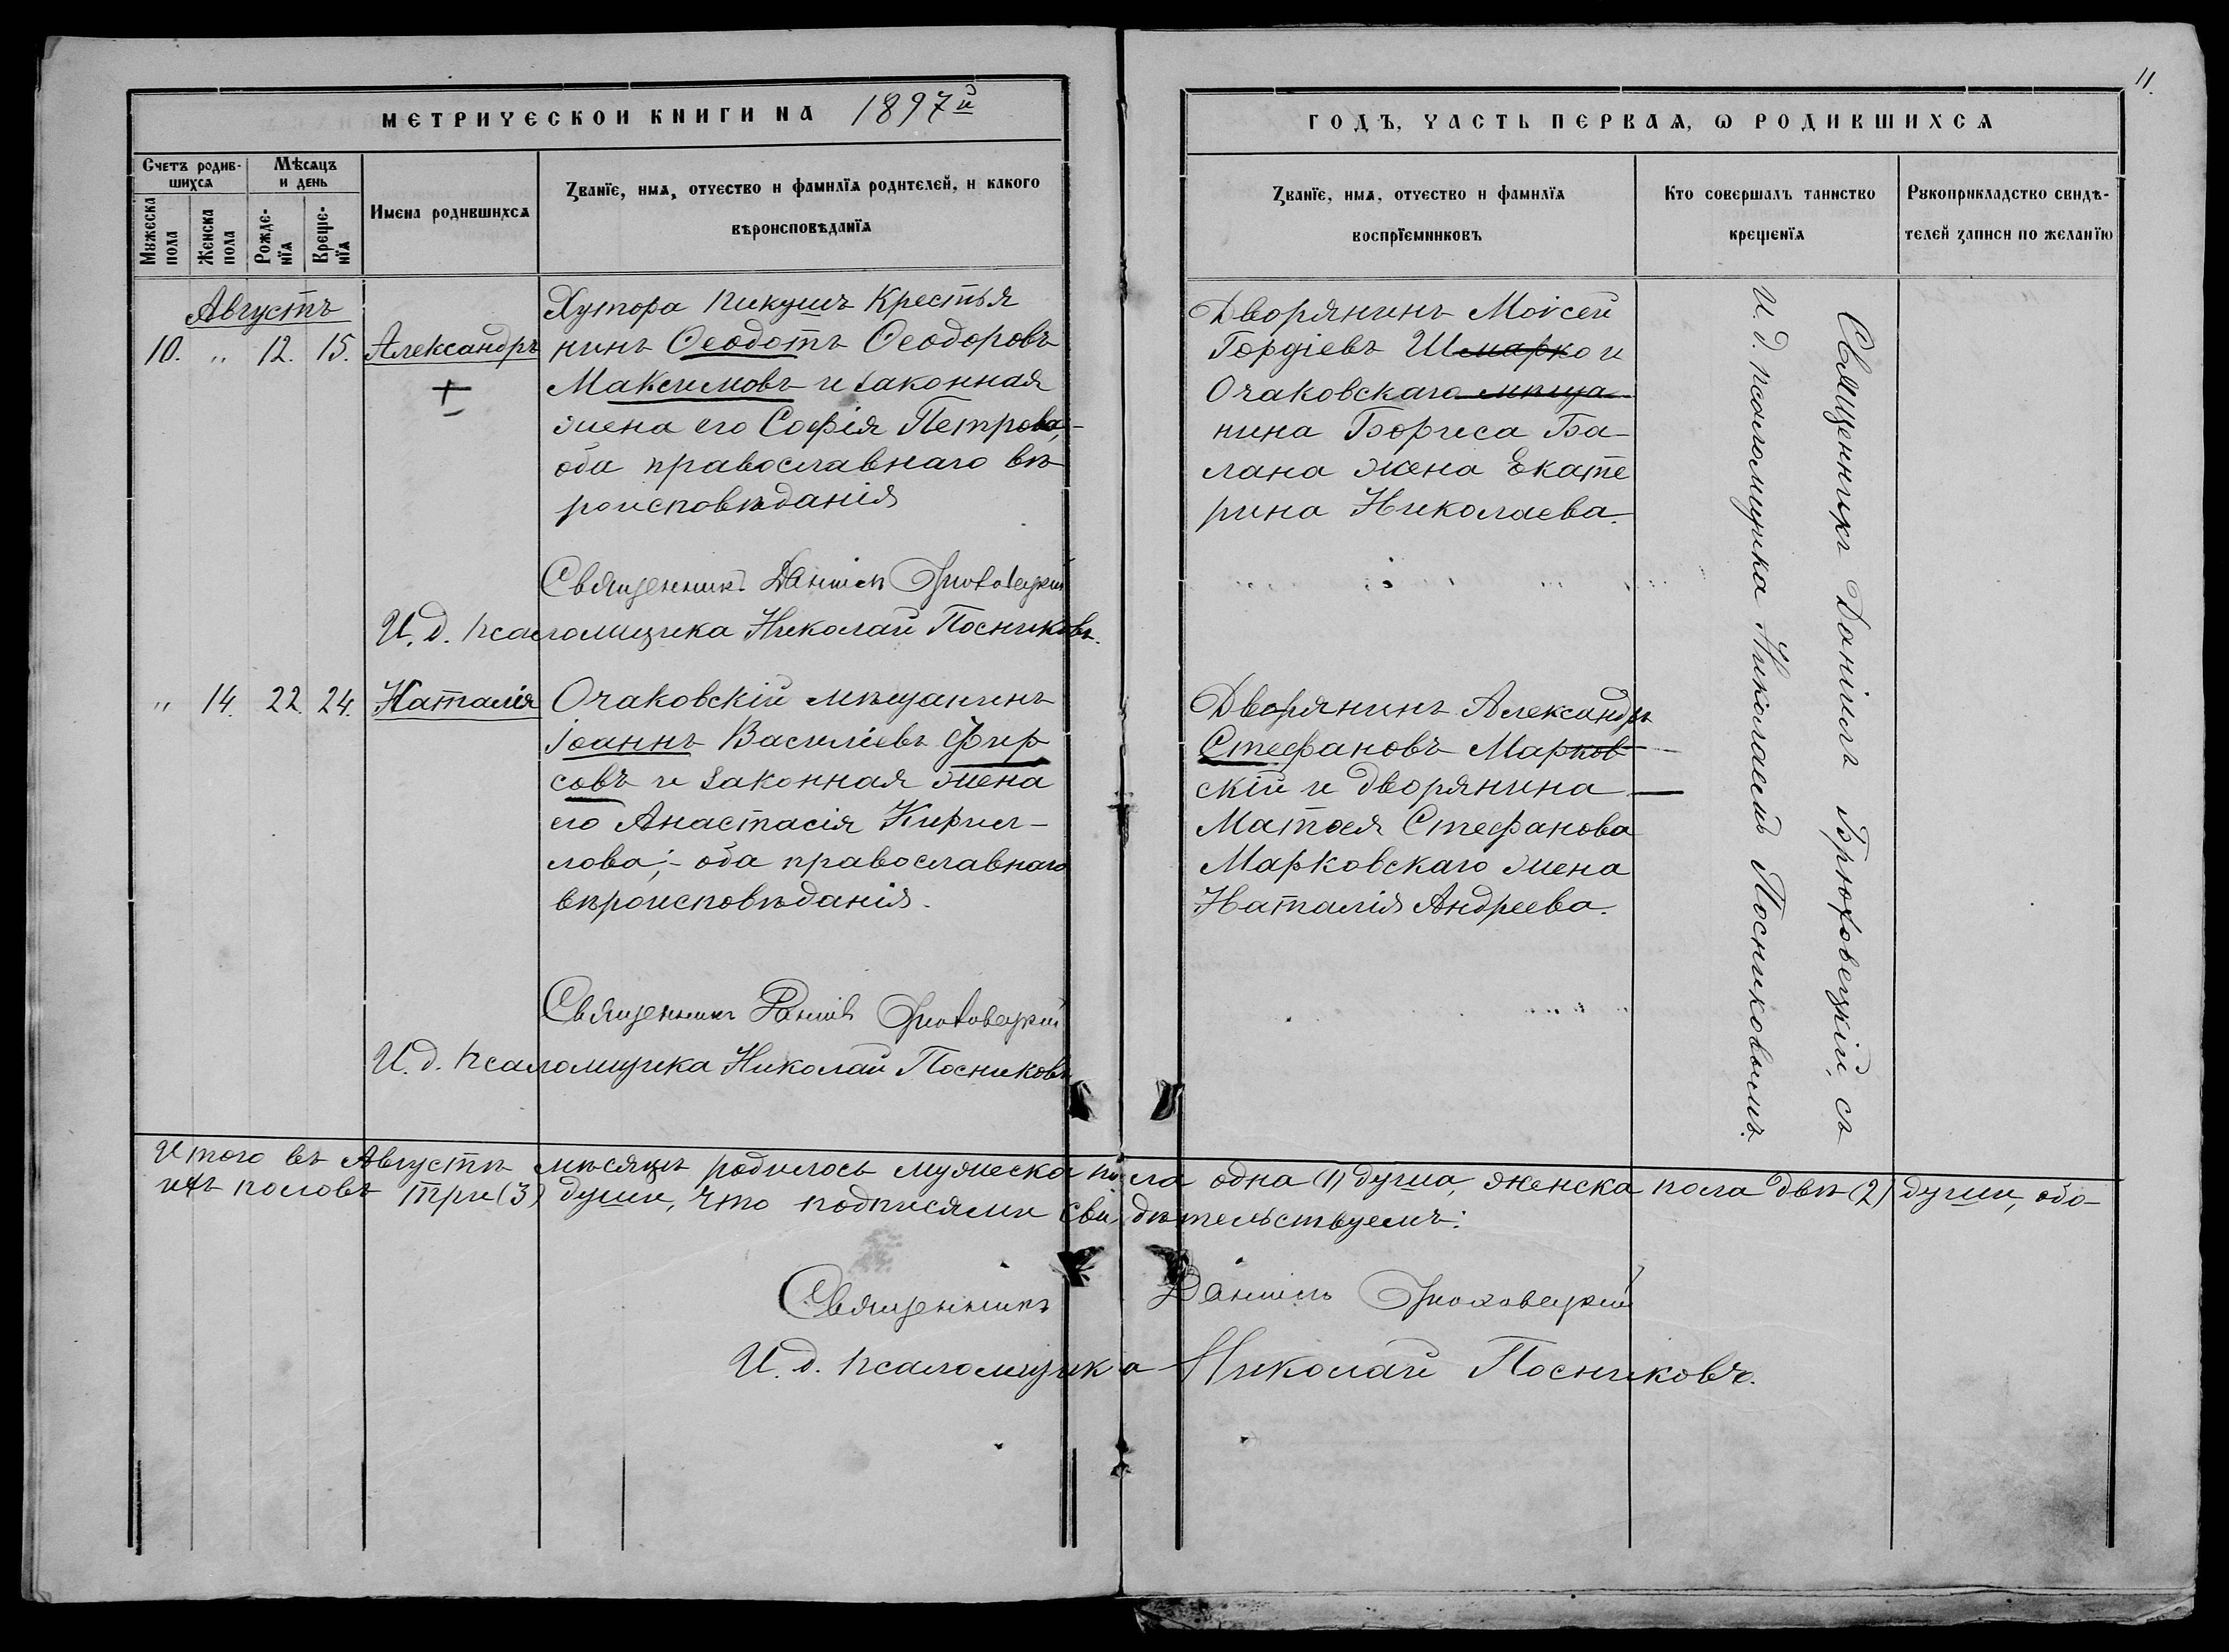 11.
МЕТРИЧЕСКОЙ КНИГИ НА 1897й
ГОДЪ, ЧАСТЬ ПЕРВАЯ, Ѡ РОДИВШИХСЯ
Счетъ родив-
шихся
Мѣсяцъ
и день
Мужеска
пола
Женска
пола
Рожде-
нїя
Креще-
нїя
Имена родившихся
Званїе, имя, отчество и фамилїя родителей, и какого
вѣроисповѣданїя
Званїе, имя, отчество и фамилїя
воспрїемниковъ
Кто совершалъ таинство
крещенїя
Рукоприкладство свидѣ-
телей записи по желанїю
Августъ
10. „ 12. 15. Александръ
Хутора Пикушъ Крестья
нинъ Ѳеодотъ Ѳеодоровъ
Максимовъ и законная
жена его Софія Петрова;-
оба православнаго вѣ-
роисповѣданія
Священникъ Даніилъ Брюховецкій
И. д. псаломщика Николай Посниковъ.
Дворянинъ Моѵсей
Гордіевъ Шмарко и
Очаковскаго мѣща-
нина Бориса Ба-
лана жена Екате
рина Николаева.
„ 14. 22. 24. Наталія
Очаковскій мѣщанинъ
Іоаннъ Василіевъ Фир
совъ и законная жена
его Анастасія Кирил-
лова;- оба православнаго
вѣроисповѣданія.
Священникъ Даніилъ Брюховецкій
И. д. псаломщика Николай Посниковъ
Дворянинъ Александръ
Стефановъ Марков-
скій и дворянина
Матѳея Стефанова
Марковскаго жена
Наталія Андреева.
Священникъ Даніилъ Брюховецкій, съ
И. д. псаломщика Николаемъ Посниковымъ.
Итого въ Августѣ мѣсяцѣ родилось мужеска пола одна (1) душа, женска пола двѣ (2) души, обо-
ихъ половъ три (3) души, что подписями свидѣтельствуемъ:
Священникъ Даніилъ Брюховецкій
И. д. псаломщика Николай Посниковъ.